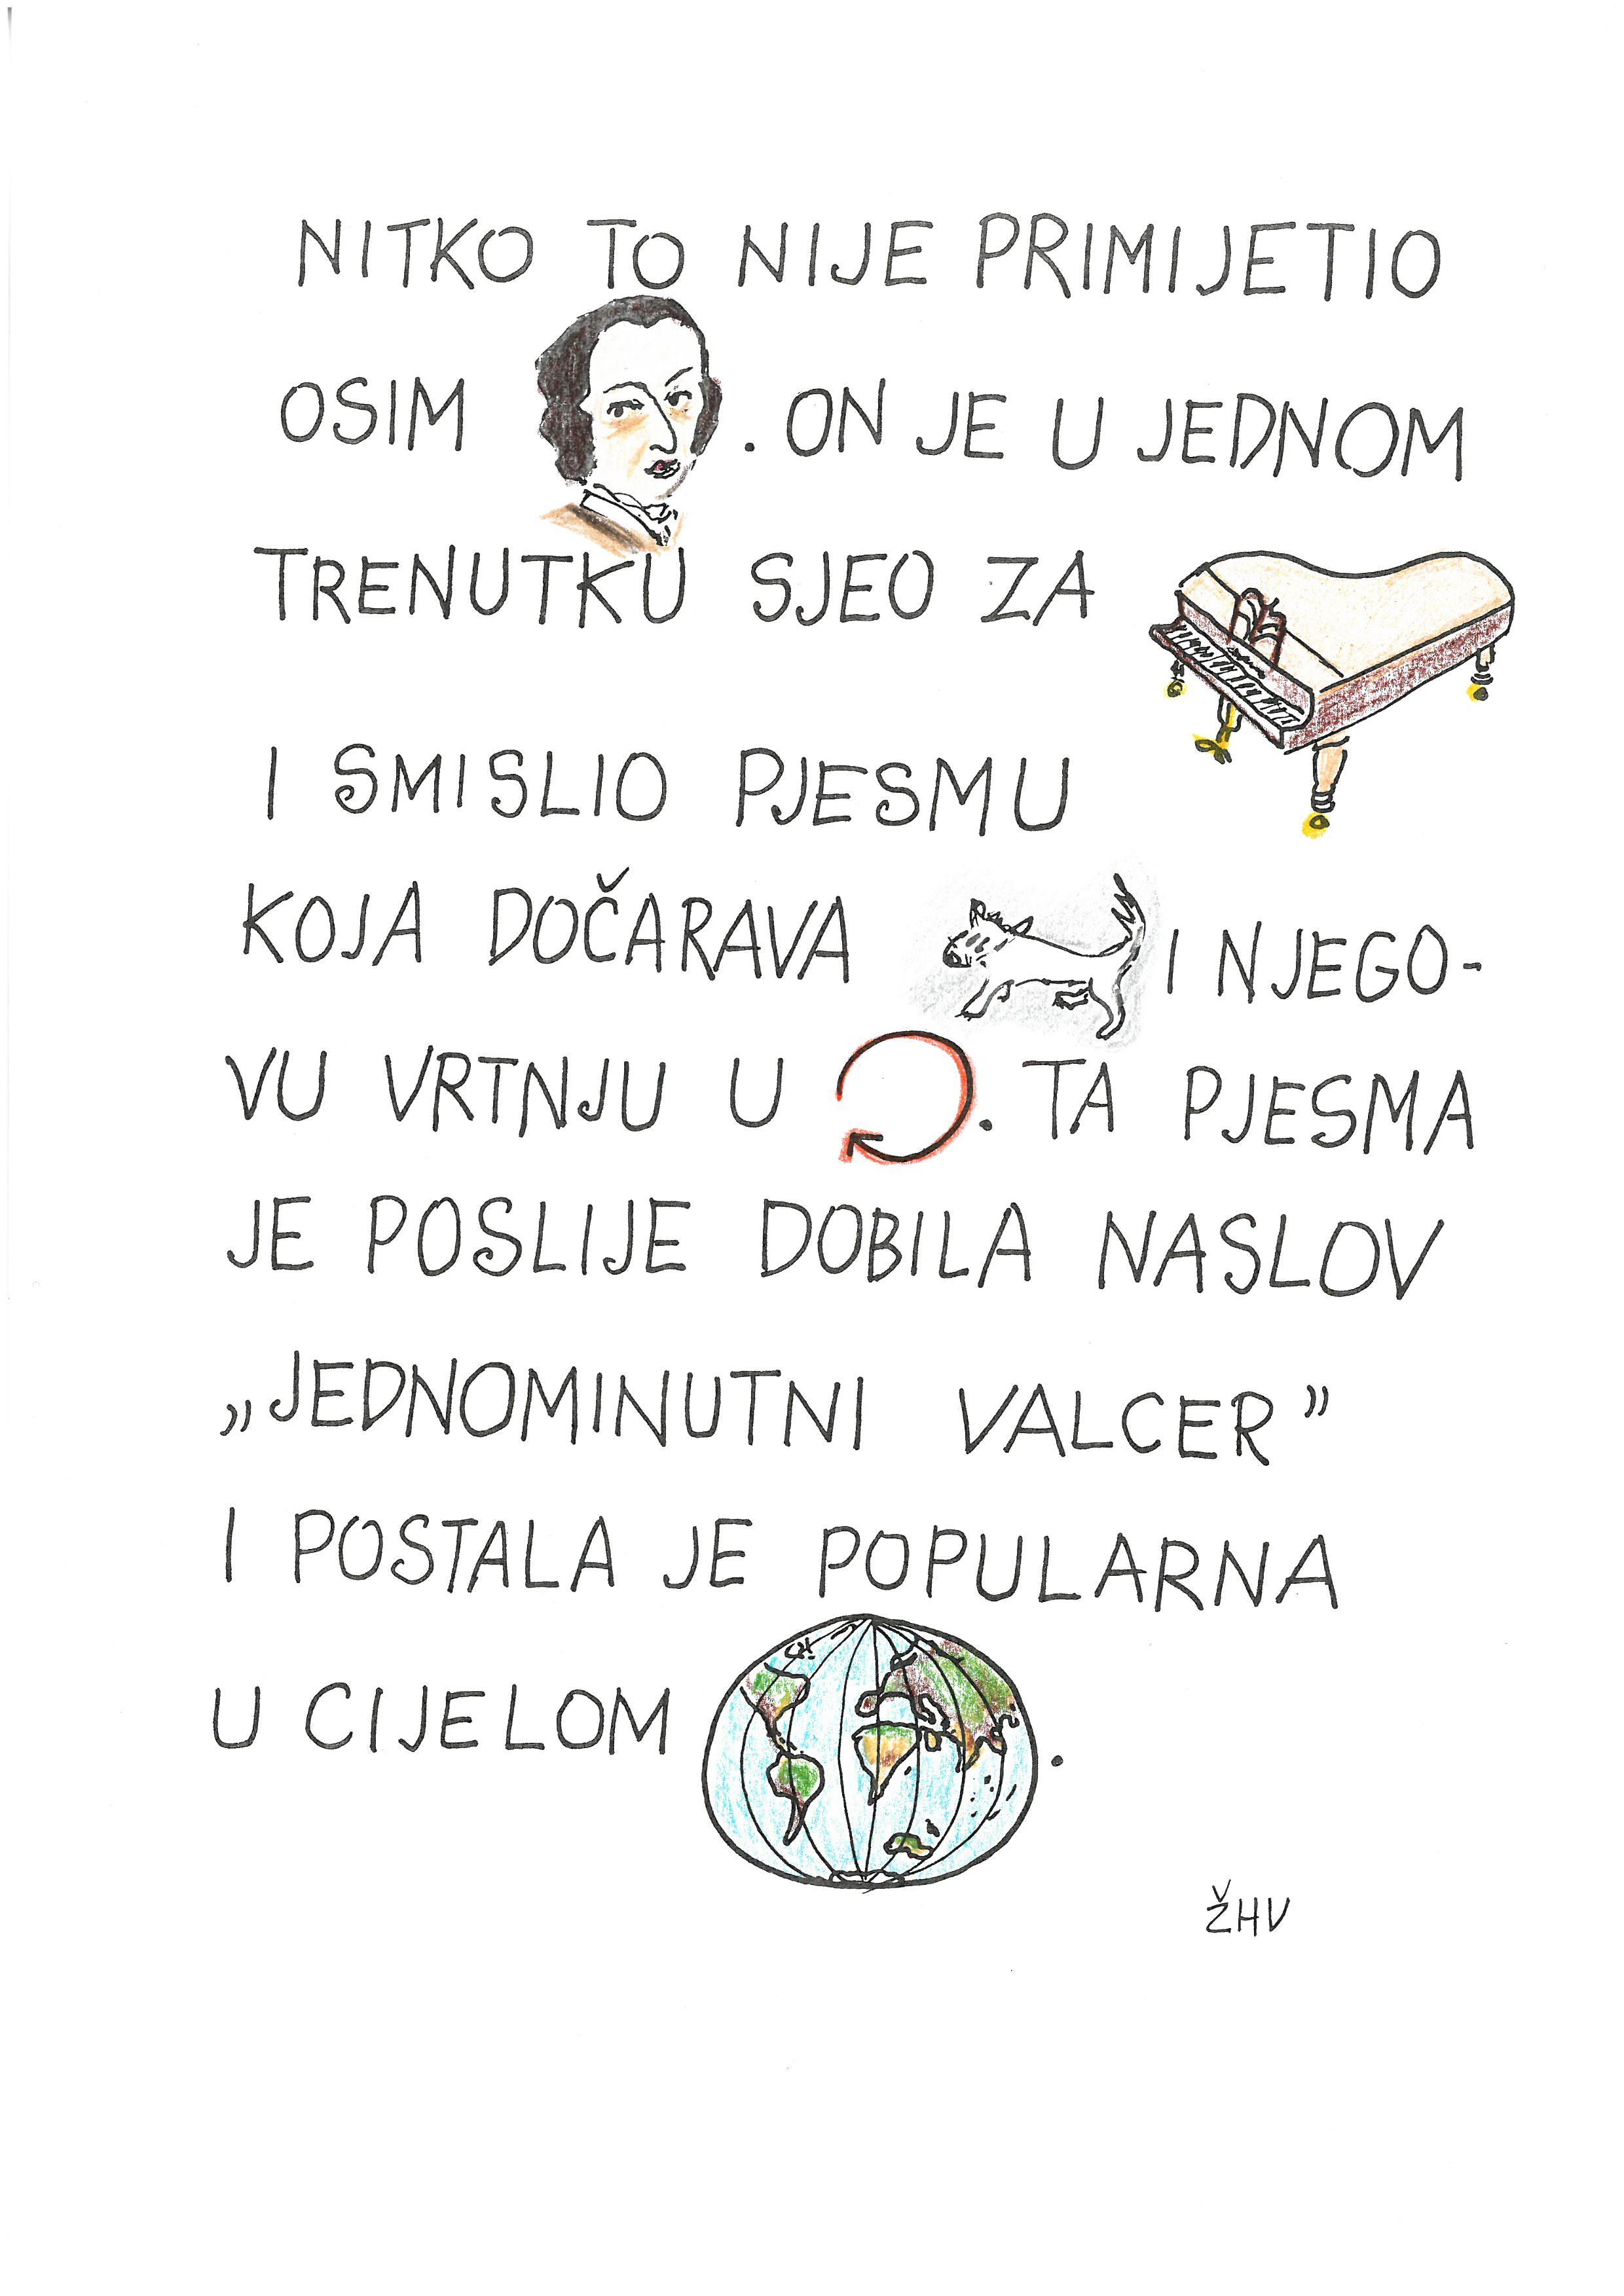 NITKO TO NIJE PRIMIJETIO
OSIM . ON JE U JEDNOM
TRENUTKU SJEO ZA
I SMISLIO PJESMU
KOJA DOČARAVA I NJEGO-
VU VRTNJU U . TA PJESMA
JE POSLIJE DOBILA NASLOV
„JEDNOMINUTNI VALCER”
I POSTALA JE POPULARNA
U CIJELOM .
ŽHV